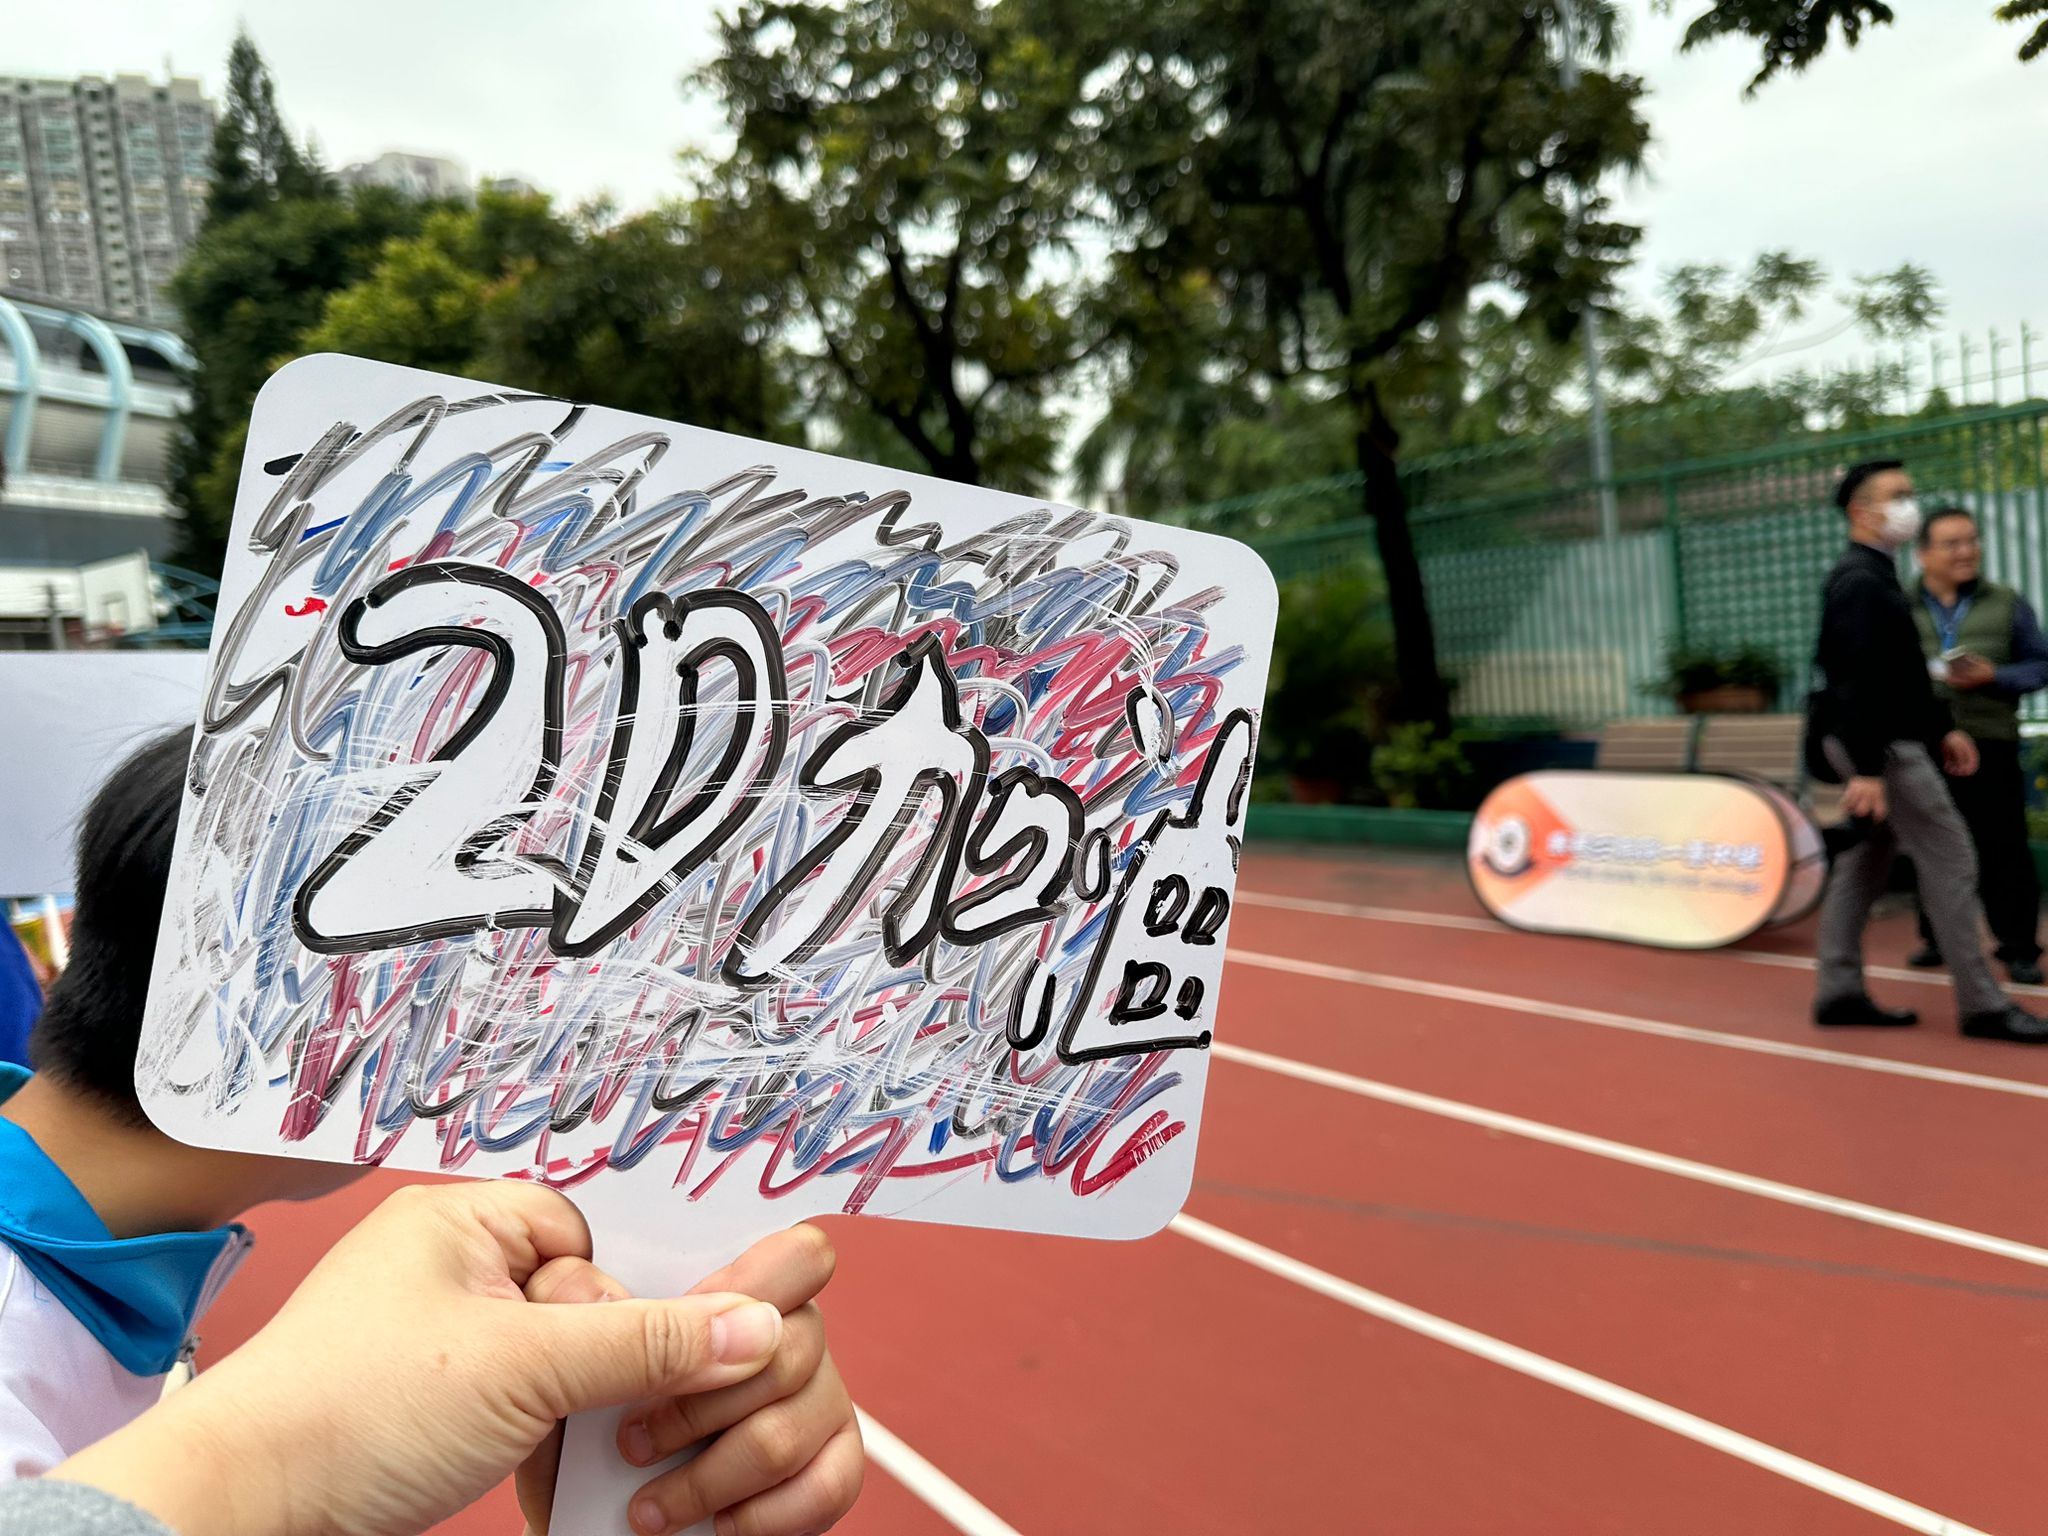 2D加油